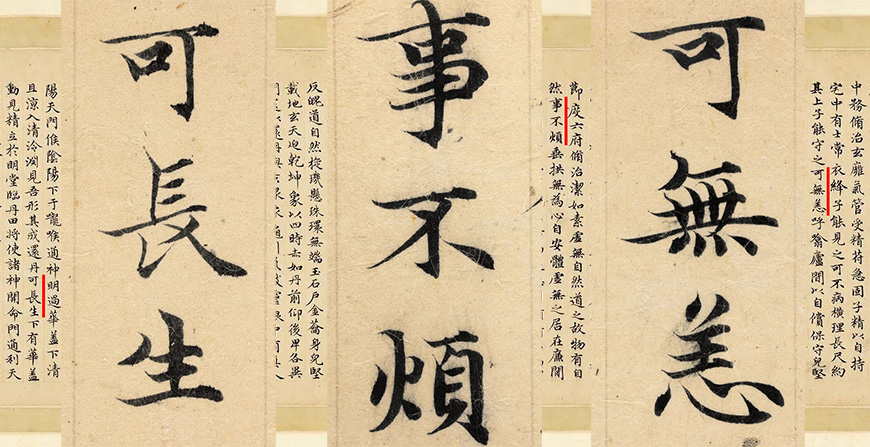 中務脩治玄廱氣管受精苻急固子精以自持
宅中有士常衣絳子能見之可不病横理長尺約
其上子能守之可無恙呼翕廬間以自償保守兒堅
可無恙
節度六府脩治潔如素虛無自然道之故物有自
然事不煩垂拱無為心自安體虛無之居在廉間
事不煩
反魄道自然旋璣懸珠環無端玉石戶金籥身兒堅
載地玄天迎乾坤象以四時赤如丹前仰後卑各異
可長生
陽天門候陰陽下于嚨喉通神明過華蓋下清
且涼入清泠淵見吾形其成還丹可長生下有華蓋
動見精立於明堂臨丹田將使諸神開命門通利天